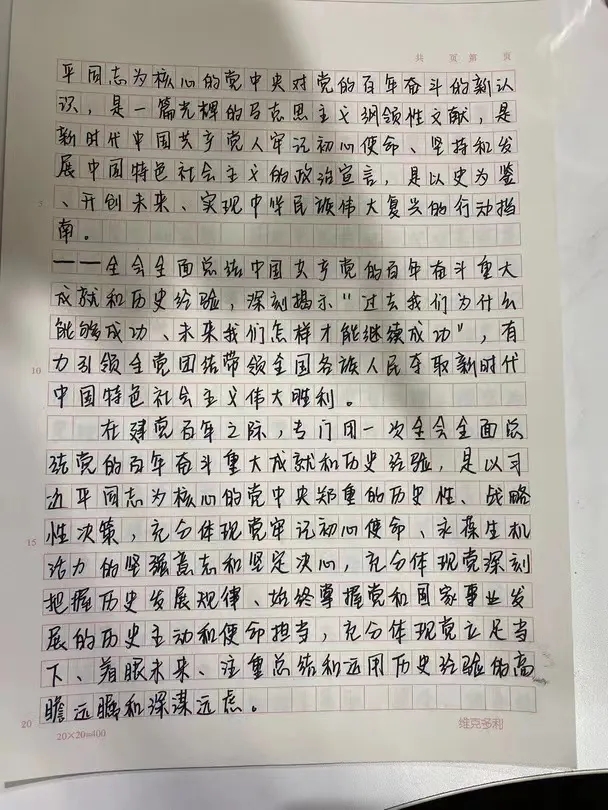 共 页 第 页
平同志为核心的党中央对党的百年奋斗的新认
识，是一篇光辉的马克思主义纲领性文献，是
新时代中国共产党人牢记初心使命、坚持和发
展中国特色社会主义的政治宣言，是以史为鉴
5
、开创未来、实现中华民族伟大复兴的行动指
南。
——全会全面总结中国共产党的百年奋斗重大
成就和历史经验，深刻揭示“过去我们为什么
能够成功、未来我们怎样才能继续成功”，有
10
力引领全党团结带领全国各族人民夺取新时代
中国特色社会主义伟大胜利。
在建党百年之际，专门用一次全会全面总
结党的百年奋斗重大成就和历史经验，是以习
近平同志为核心的党中央郑重的历史性、战略
15
性决策，充分体现党牢记初心使命、永葆生机
活力的坚强意志和坚定决心，充分体现党深刻
把握历史发展规律、始终掌握党和国家事业发
展的历史主动和使命担当，充分体现党立足当
下、着眼未来、注重总结和运用历史经验的高
20
瞻远瞩和深谋远虑。
20×20=400
维克多利